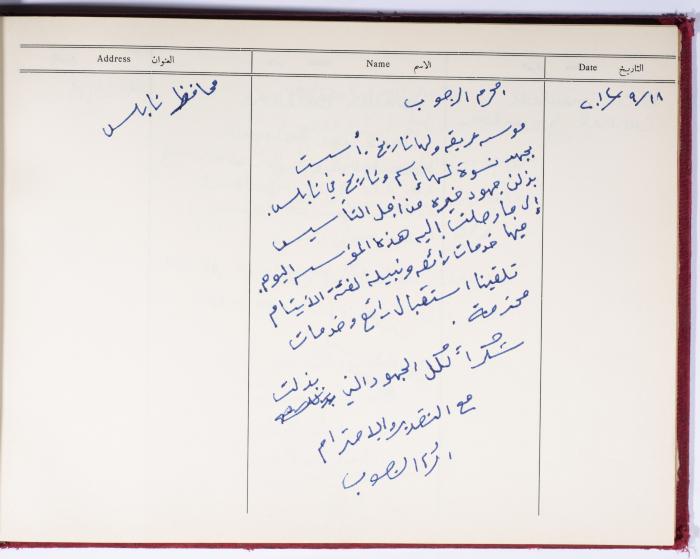 Address العنوان Name الاسم Date التاريخ
محافظ نابلس اكرم الرجوب ٩/١٨
مؤسسه عريقه ولها تاريخ. أسست
بجهد نسوة لها إسم وتاريخ في نابلس.
بذلن جهود خيره من اجل التأسيس
إلى ما وصلت إليه هذه المؤسسه اليوم.
فيها خدمات رائعه ونبيلة لفئة الأيتام
تلقينا استقبال رائع وخدمات
محترمة.
شكراً لكل الجهود التي بذلت
مع التقدير والاحترام
اكرم الرجوب